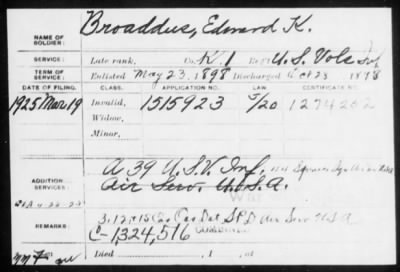 NAME OF SOLDIER: Broaddus, Edward K.
SERVICE: Late rank, Co. K, 1 Reg't U.S. Vols Inf
TERM OF SERVICE: Enlisted May 23, 1898 Discharged Oct 23 1898
DATE OF FILING. CLASS. APPLICATION NO. LAW. CERTIFICATE NO.
1925 Mar 19 Invalid, 1515923 5/20 1274262
Widow,
Minor,
ADDITIONAL SERVICES: A 39 U.S.V. Inf.
Air Serv. U.S.A.
REMARKS: Cas Det. Air Serv USA
C-1,324,516
Died , 1 , at